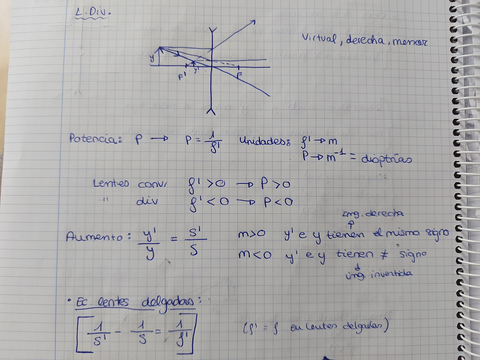 L. Div.
Virtual, derecha, menor
y
y'
F'
F
Potencia: P → P = 1/f' Unidades: f' → m
P → m⁻¹ = dioptrías
Lentes conv. f' > 0 → P > 0
" div f' < 0 → P < 0
img. derecha
Aumento: y'/y = s'/s m>0 y' e y tienen el mismo signo
m<0 y' e y tienen ≠ signo
img. invertida
• Ec lentes delgadas:
[1/s' - 1/s = 1/f'] (f' = f en lentes delgadas)